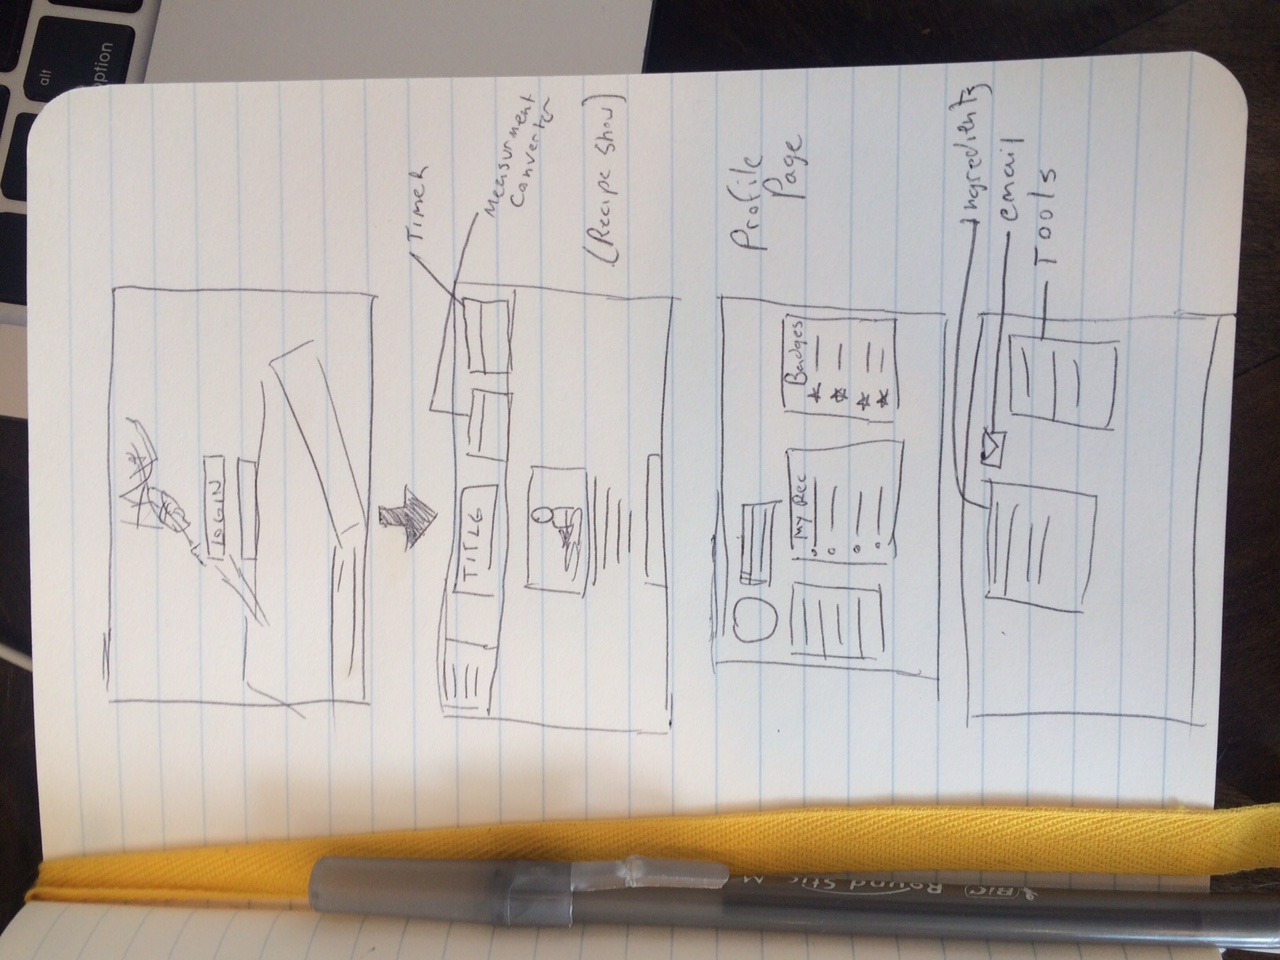 alt
option
LOGIN
Timer
TITLE
Measurment
Converter
(Recipe Show)
Profile
Page
My Rec
Badges
Ingredients
email
Tools
BIC Round Stic M